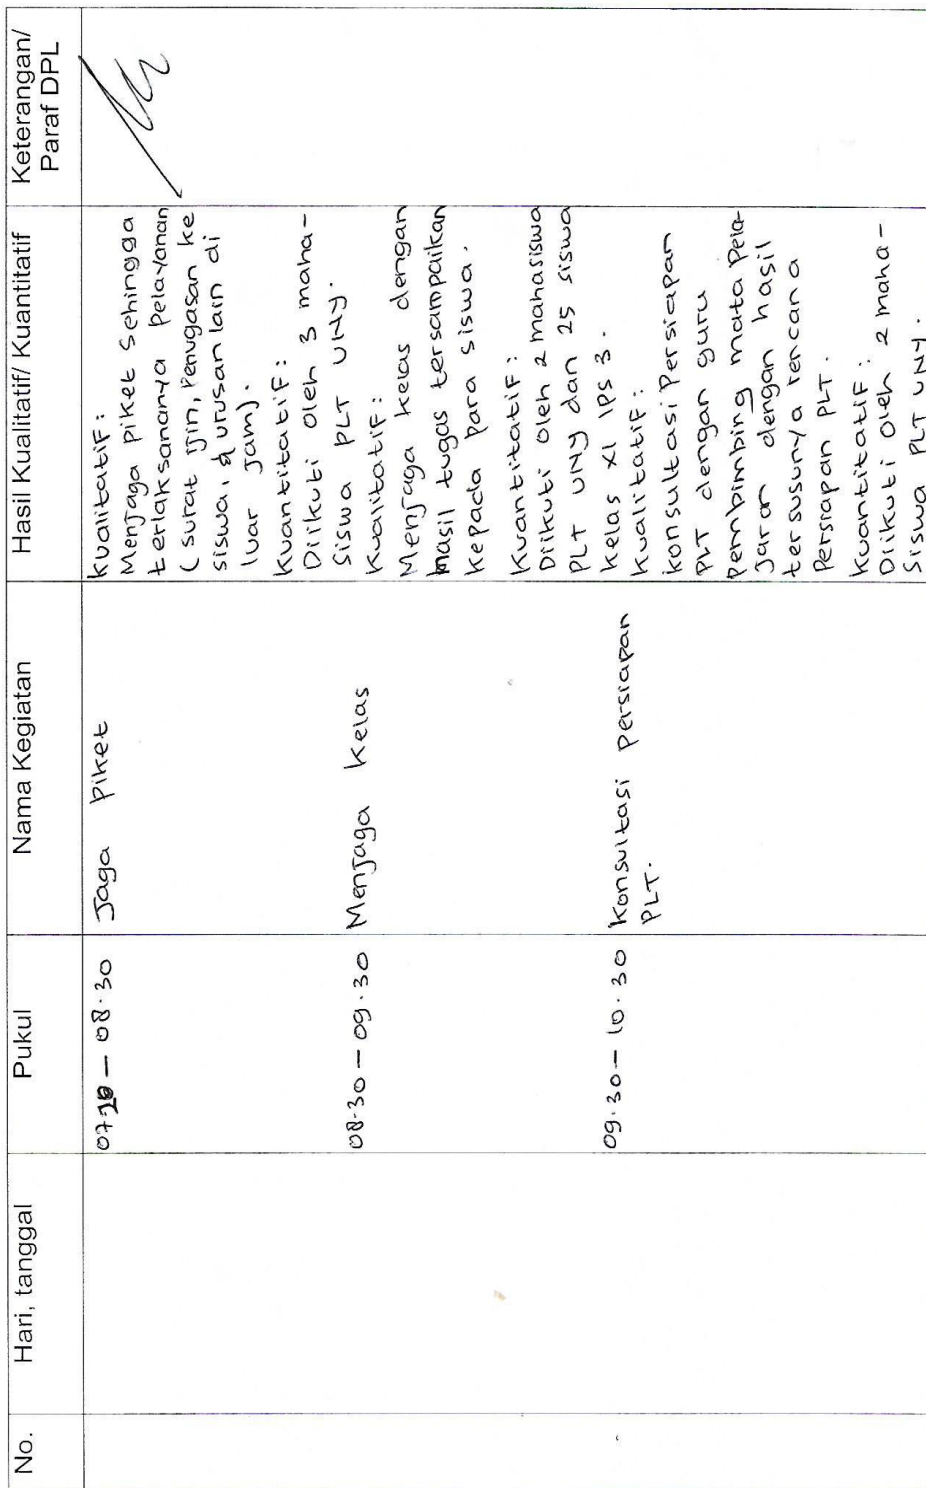 No.
Hari, tanggal
Pukul
Nama Kegiatan
Hasil Kualitatif/ Kuantitatif
Keterangan/
Paraf DPL
08.30
Jaga piket
kualitatif:
Menjaga piket sehingga
terlaksananya pelayanan
(surat ijin, penugasan ke
siswa, & urusan lain di
luar jam).
Kuantitatif:
Diikuti oleh 3 maha-
siswa PLT UNY.
08.30 – 09.30
Menjaga kelas
Kualitatif:
Menjaga kelas dengan
hasil tugas tersampaikan
kepada para siswa.
Kuantitatif:
Diikuti oleh 2 mahasiswa
PLT UNY dan 25 siswa
kelas XI IPS 3.
09.30 – 10.30
Konsultasi persiapan
PLT.
kualitatif:
konsultasi persiapan
PLT dengan guru
pembimbing mata pela-
jaran dengan hasil
tersusunya rencana
persiapan PLT.
kuantitatif:
Diikuti oleh 2 maha-
siswa PLT UNY.